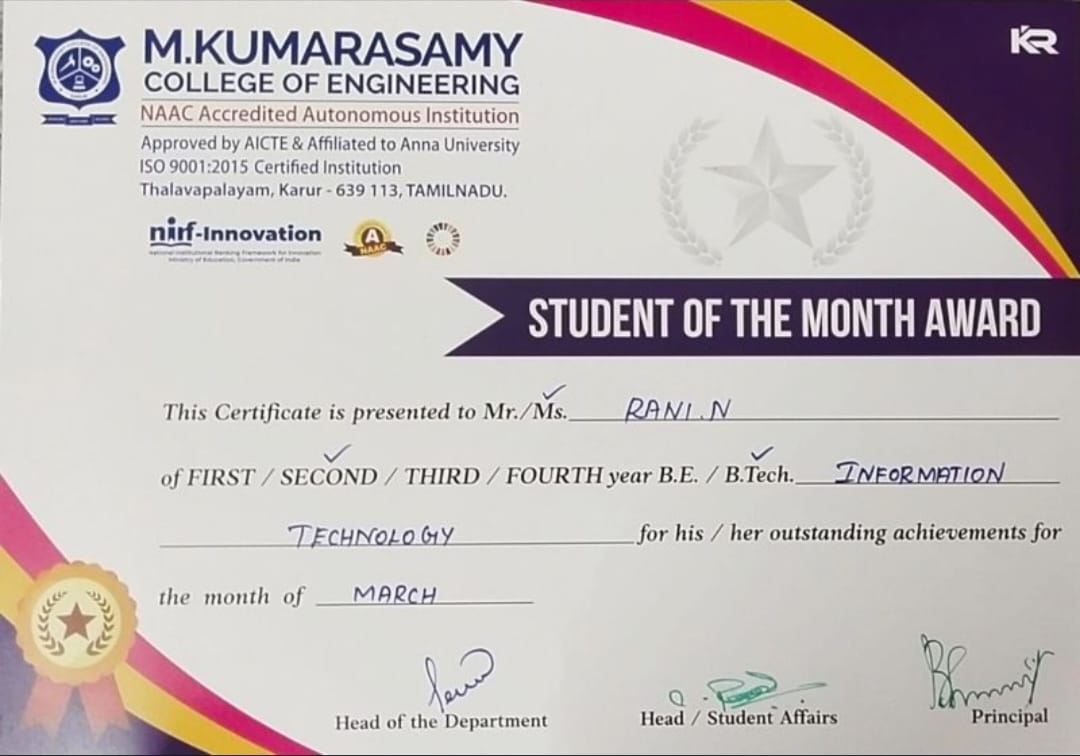 M.KUMARASAMY
COLLEGE OF ENGINEERING
NAAC Accredited Autonomous Institution
Approved by AICTE & Affiliated to Anna University
ISO 9001:2015 Certified Institution
Thalavapalayam, Karur - 639 113, TAMILNADU.
KR
nirf-Innovation
National Institutional Ranking Framework for Innovation
Ministry of Education, Government of India
A
NAAC
STUDENT OF THE MONTH AWARD
This Certificate is presented to Mr./Ms. RANI.N
of FIRST / SECOND / THIRD / FOURTH year B.E. / B.Tech. INFORMATION
TECHNOLOGY for his / her outstanding achievements for
the month of MARCH
Head of the Department Head / Student Affairs Principal